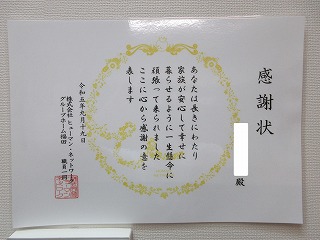 感謝状
殿
あなたは長きにわたり
家族が安心して幸せに
暮らせるように一生懸命に
頑張って来られました
ここに心から感謝の意を
表します
令和五年九月十九日
株式会社ヒューマン・ネットワーク
グループホーム福田
職員一同